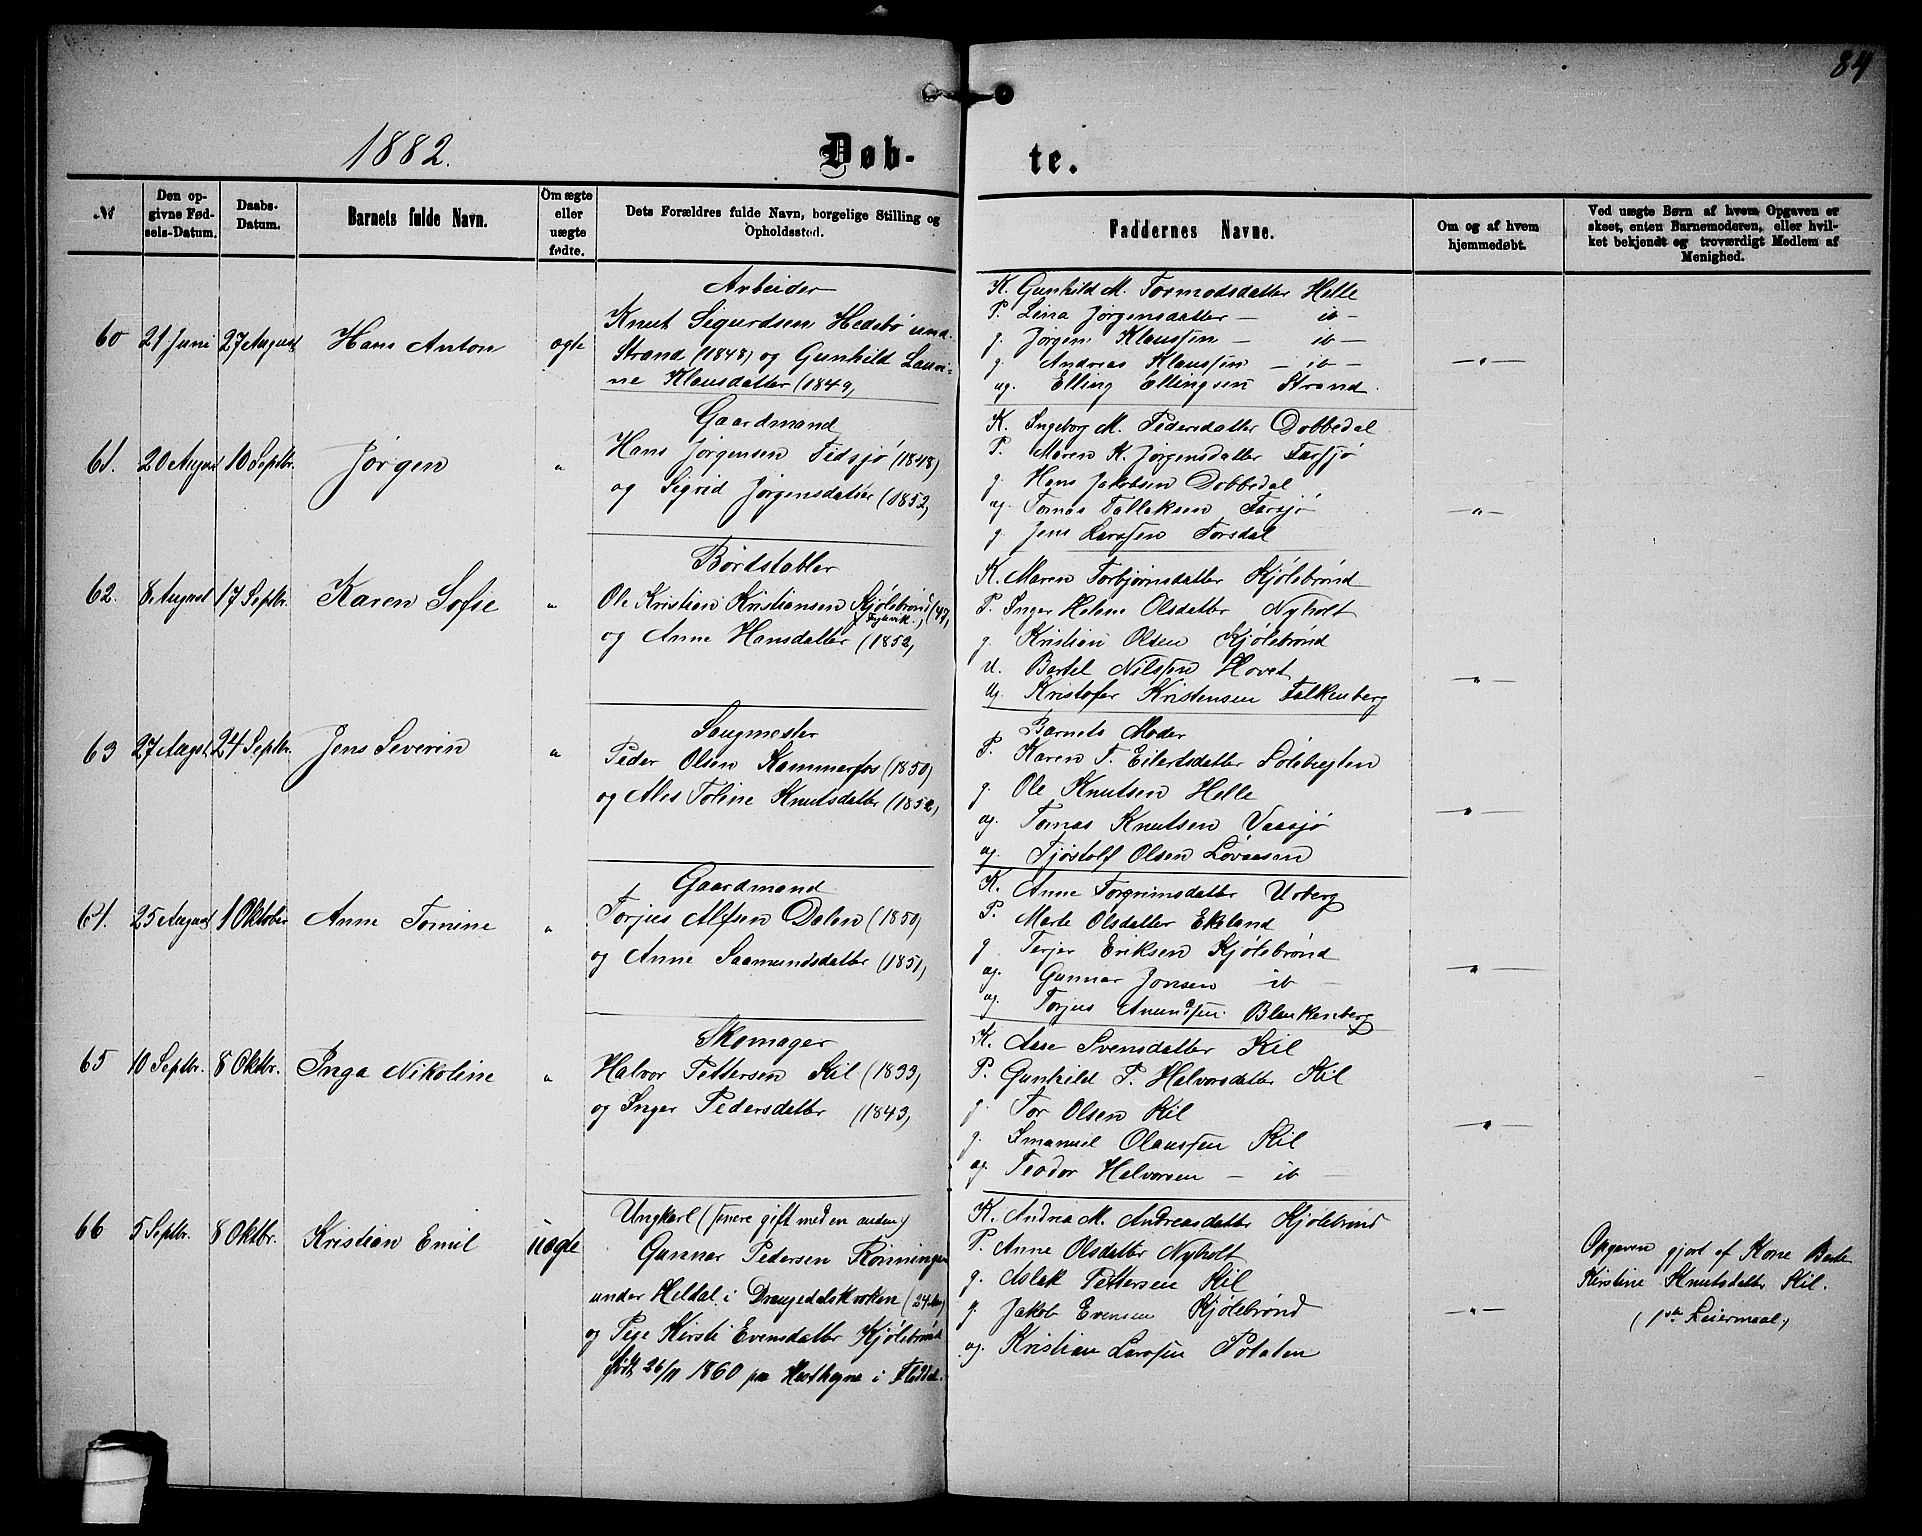 84
1882.
Døb-
te.
№
Den op-
givne Fød-
sels-Datum.
Daabs-
Datum.
Barnets fulde Navn.
Om ægte
eller
uægte
fødte.
Dets Forældres fulde Navn, borgelige Stilling og
Opholdssted.
Faddernes Navne.
Om og af hvem
hjemmedøbt.
Ved uægte Børn af hvem Opgaven er
skeet, enten Barnemoderen, eller hvil-
ket bekjendt og troværdigt Medlem af
Menighed.
60 21 Juni 27 August Hans Anton ægte
Arbeider
Knut Sigurdsen Hedebø und.
Strand (1848) og Gunhild Lauri-
ne Klausdatter (1849,
K. Gunhild M. Tormodsdatter Helle
P. Lina Jørgensdatter — ib —
g. Jørgen Klaussen — ib —
g. Andreas Klaussen — ib —
ug. Elling Ellingsen Strand.
— " —
61. 20 August 10 Septbr. Jørgen "
Gaardmand
Hans Jørgensen Fidsjø (1848)
og Sigrid Jørgensdatter (1852,
K. Ingeborg M. Pedersdatter Dobbedal
P. Maren K. Jørgensdatter Farsjø
g. Hans Jakobsen Dobbedal
ug. Tomas Tallaksen Farsjø
g. Jens Larssen Torsdal
— " —
62. 8 August 17 Septbr. Karen Sofie "
Bordstabler
Ole Kristian Kristiansen Kjølebrønd (47,
og Anne Hansdatter (1852,
K. Maren Torbjørnsdatter Kjølebrønd
P. Inger Helene Olsdatter Nyholt
g. Kristian Olsen Kjølebrønd
u. Bertel Nilssen Hovet
ug. Kristofer Kristensen Falkenberg
— " —
63 27 Augst. 24 Septbr. Jens Severin "
Saugmester
Peder Olsen Kammerfos (1850)
og Ales Toline Knutsdatter (1852)
Barnets Moder
P. Karen T. Eilertsdatter
g. Ole Knutsen Helle
ug. Tomas Knutsen Vaasjø
ug. Tjøstolf Olsen Løvaasen
— " —
64. 25 August 1 Oktober Anne Tomine "
Gaardmand
Torjus Alfsen Dalen (1850)
og Anne Saamundsdatter (1851,
K. Anne Torgrimsdatter Urberg
P. Marte Olsdatter Ekeland
g. Terjer Eriksen Kjølebrønd
ug. Gunnar Jonsen ib —
ug. Torjus Amundsen Blankenberg
— " —
65 10 Septbr. 8 Oktbr. Inga Nikoline "
Skomager
Halvor Pettersen Kil (1833,
og Inger Pedersdatter (1843,
K. Aase Svensdatter Kil
P. Gunhild P. Halvorsdatter Kil
g. Tor Olsen Kil
g. Imanuel Olaussen Kil
ug. Teodor Halvorsen — ib —
— " —
66 5 Septbr. 8 Oktbr. Kristian Emil uægte
Ungkarl (senere gift med en anden)
Gunnar Pedersen Rønningen
under Heldal i Drangedalskroken (24 Aar)
og Pige Kirsti Evensdatter Kjølebrønd
født 26/11 1860 paa
K. Andrea M. Andreasdatter Kjølebrønd
P. Anne Olsdatter Nyholt
g. Aslak Pettersen Kil
g. Jakob Evensen Kjølebrønd
ug. Kristian Larssen
— " —
Opgaven gjort af Kone Berte
Kirstine Knutsdatter Kil.
(1ste Leiermaal,)